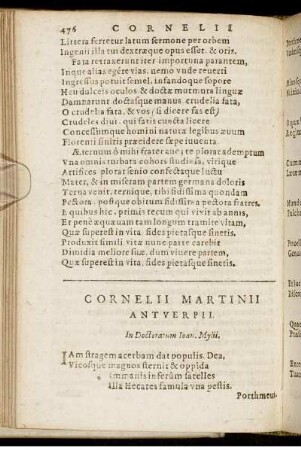 476 CORNELII
Littera fertetur latum sermone per orbem
Ingenii illa tui dextræque opus esset. & oris.
Fata retraxerunt iter importuna parantem,
Inque alias egêre vias. nemo vnde reuerti
Ingressus potuit semel. infandoque sopore
Heu dulceis oculos. & doctæ mutmura linguæ
Damnarunt doctasque manus. crudelia fata,
O crudelia fata. & vos (si dicere fas est)
Crudeles diui. qui fatis cuncta licere
Concessumque homini natura legibus æuum
Florenti sinitis præcidere sæpe iuuenta.
Æternum ô mihi frater aue, te plorat ademptum
Vna omnis turbata cohors studiosa, virique
Artifices plorat senio confectaque luctu
Mater, & in miseram partem germana doloris
Terna venit. ternique, tibi fidissima quondam
Pectora. posque obitum fidissima pectora fratres.
E quibus hic, primis tecum qui vixit ab annis,
Et penè æquæuam tam longum tramite vitam,
Quæ superest in vita. fides pietasque sinetis.
Produxit simili. vitæ nunc parte carebit
Dimidia meliore suæ, dum viuere partem,
Quæ superest in vita, fides pietasque sinetis.
CORNELII MARTINII
ANTVERPII.
In Doctoratum Ioan. Mylii.
IAm stragem acerbam dat populis. Dea,
Vicosque magnos sternit & oppida
Immanis inferûm satelles
Illa Hecates famula vna pestis.
Porthmeus